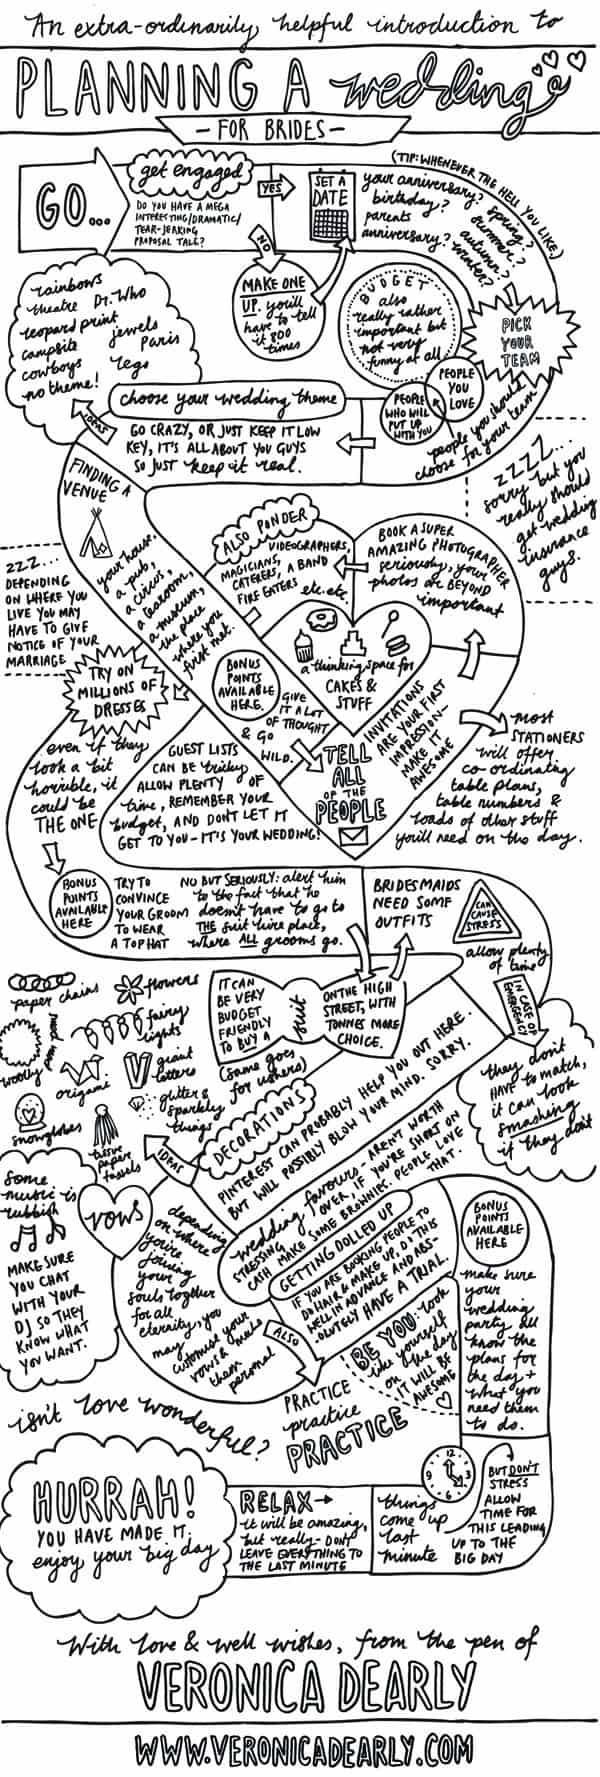 An extra-ordinarily helpful introduction to
PLANNING A wedding
- FOR BRIDES -
GO...
get engaged
DO YOU HAVE A MEGA
INTERESTING/DRAMATIC/
TEAR-JERKING
PROPOSAL TALE?
YES
NO
MAKE ONE
UP. you'll
have to tell
it 800
times
SET A
DATE
(TIP: WHENEVER THE HELL YOU LIKE.)
your anniversary?
birthday?
parents
anniversary?
spring?
summer?
autumn?
winter?
PICK
YOUR
TEAM
people you should
choose for your team
PEOPLE
YOU
LOVE
PEOPLE
WHO WILL
PUT UP
WITH YOU
BUDGET
also
really rather
important but
not very
funny at all
zzzz...
sorry but you
really should
get wedding
insurance
guys.
choose your wedding theme
GO CRAZY, OR JUST KEEP IT LOW
KEY, IT'S ALL ABOUT YOU GUYS
SO JUST keep it real.
IDEAS
rainbows
theatre Dr. Who
leopard print
jewels
campsite Paris
cowboys
lego
no theme!
FINDING A
VENUE
your house,
a pub,
a circus,
a tearoom,
a museum,
the place
where you
first met.
ZZZ...
DEPENDING
ON WHERE YOU
LIVE YOU MAY
HAVE TO GIVE
NOTICE OF YOUR
MARRIAGE
BONUS
POINTS
AVAILABLE
HERE.
GIVE
IT A LOT
OF THOUGHT
& GO
WILD.
TELL
ALL
OF THE
PEOPLE
INVITATIONS
ARE YOUR FIRST
IMPRESSION-
MAKE IT
AWESOME
most
STATIONERS
will offer
co-ordinating
table plans,
table numbers &
loads of other stuff
you'll need on the day.
BOOK A SUPER
AMAZING PHOTOGRAPHER
seriously, your
photos are BEYOND
important
ALSO PONDER
VIDEOGRAPHERS,
MAGICIANS,
CATERERS, A BAND
FIRE EATERS
etc. etc.
a thinking space for
CAKES &
STUFF
GUEST LISTS
CAN BE tricky
ALLOW PLENTY OF
time, REMEMBER YOUR
budget, AND DON'T LET IT
GET TO YOU - IT'S YOUR WEDDING!
TRY ON
MILLIONS OF
DRESSES
even if they
look a bit
horrible, it
could be
THE ONE
BONUS
POINTS
AVAILABLE
HERE
TRY TO
CONVINCE
YOUR GROOM
TO WEAR
A TOP HAT
NO BUT SERIOUSLY: alert him
to the fact that he
doesn't have to go to
THE suit hire place,
where ALL grooms go.
IT CAN
BE VERY
BUDGET
FRIENDLY
TO BUY A
suit
ON THE HIGH
STREET, WITH
TONNES MORE
CHOICE.
(same goes
for ushers)
BRIDESMAIDS
NEED SOME
OUTFITS
CAN
CAUSE
STRESS
allow plenty
of time
IN CASE OF
EMERGENCY
they don't
HAVE to match,
it can look
smashing
if they don't
DECORATIONS
PINTEREST CAN PROBABLY HELP YOU OUT HERE.
BUT WILL POSSIBLY BLOW YOUR MIND. SORRY.
IDEAS
paper chains
flowers
woolly pom poms
fairy
lights
origami
giant
letters
snowglobes
tissue
paper
tassels
glitter &
sparkly
things
wedding favours - AREN'T WORTH
STRESSING OVER, IF YOU'RE SHORT ON
CASH MAKE SOME BROWNIES. PEOPLE LOVE
THAT.
vows
depending
on where
you're
joining
your
souls together
for all
eternity, you
may
customise your
vows & make
them
personal
ALSO
PRACTICE
practice
PRACTICE
Some
music is
rubbish
MAKE SURE
YOU CHAT
WITH YOUR
DJ SO THEY
KNOW WHAT
YOU WANT.
GETTING DOLLED UP
IF YOU ARE BOOKING PEOPLE TO
DO HAIR & MAKE UP, DO THIS
WELL IN ADVANCE AND ABS-
OLUTELY HAVE A TRIAL.
BE YOU: look
like yourself
on the day
IT WILL BE
AWESOME
BONUS
POINTS
AVAILABLE
HERE
make sure
your
wedding
party all
know the
plans for
the day +
what you
need them
to do.
isn't love wonderful?
12
3
6
9
things
come up
last
minute
BUT DON'T
STRESS
ALLOW
TIME FOR
THIS LEADING
UP TO THE
BIG DAY
RELAX
it will be amazing,
but really - DON'T
LEAVE EVERYTHING TO
THE LAST MINUTE
HURRAH!
YOU HAVE MADE IT,
enjoy your big day
With love & well wishes, from the pen of
VERONICA DEARLY
WWW.VERONICADEARLY.COM